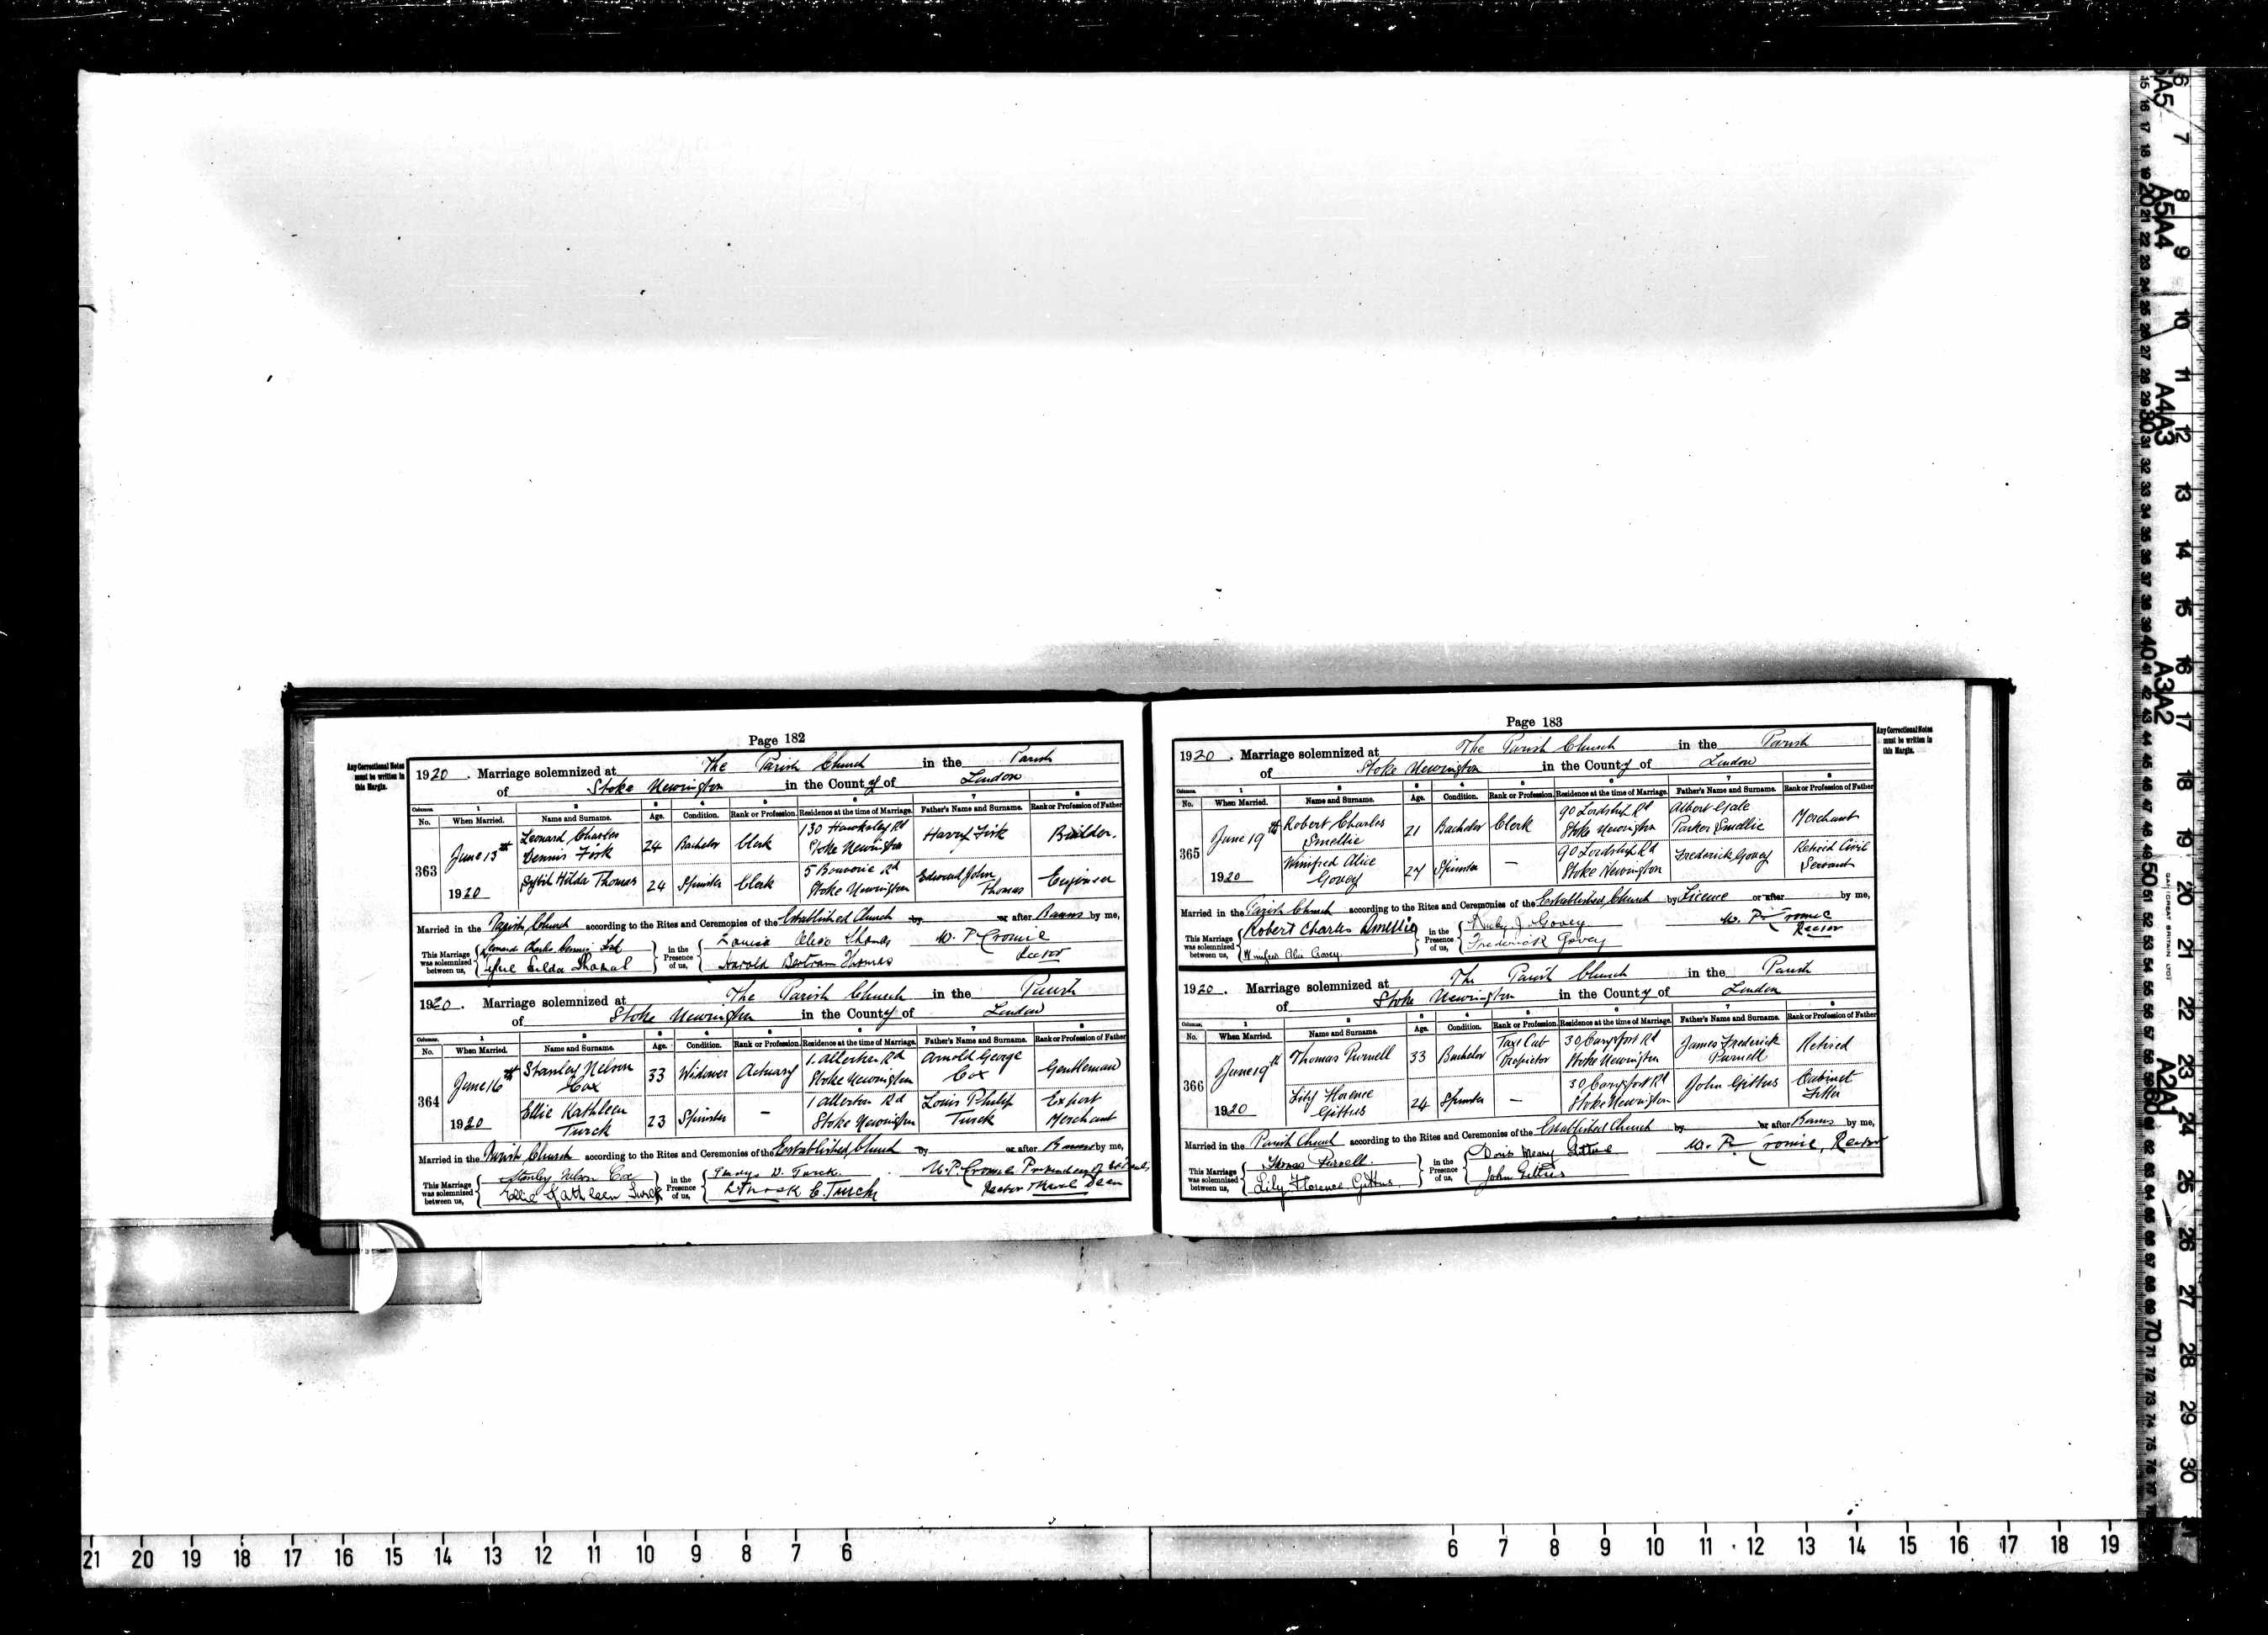 Page 182
Any Correctional Notes
must be written in
this Margin.
1920. Marriage solemnized at The Parish Church in the Parish
of Stoke Newington in the County of London
Columns. 1 2 3 4 5 6 7 8
No. When Married. Name and Surname. Age. Condition. Rank or Profession. Residence at the time of Marriage. Father's Name and Surname. Rank or Profession of Father
363 June 13th 1920
Leonard Charles Dennis Fisk 24 Bachelor Clerk 130 Hawksley Rd Stoke Newington Harry Fisk Builder.
Sybil Hilda Thomas 24 Spinster Clerk 5 Bouverie Rd Stoke Newington Edward John Thomas Engineer
Married in the Parish Church according to the Rites and Ceremonies of the Established Church by or after Banns by me,
This Marriage was solemnized between us, Leonard Charles Dennis Fisk
Hilda Thomas
in the Presence of us, Louisa Thomas
Harold Bertram Thomas
W. P. Cromie
Rector
1920. Marriage solemnized at The Parish Church in the Parish
of Stoke Newington in the County of London
Columns. 1 2 3 4 5 6 7 8
No. When Married. Name and Surname. Age. Condition. Rank or Profession. Residence at the time of Marriage. Father's Name and Surname. Rank or Profession of Father
364 June 16th 1920
Stanley Nelson Cox 33 Widower Actuary 1 Allerton Rd Stoke Newington Arnold George Cox Gentleman
Ellie Kathleen Turck 23 Spinster — 1 Allerton Rd Stoke Newington Louis Philip Turck Export Merchant
Married in the Parish Church according to the Rites and Ceremonies of the Established Church by or after Banns by me,
This Marriage was solemnized between us, Stanley Nelson Cox
Ellie Kathleen Turck
in the Presence of us, Gladys D. Turck.
C. Turck
W. P. Cromie Prebendary of St Pauls,
Rector & Rural Dean
Page 183
Any Correctional Notes
must be written in
this Margin.
1920. Marriage solemnized at The Parish Church in the Parish
of Stoke Newington in the County of London
Columns. 1 2 3 4 5 6 7 8
No. When Married. Name and Surname. Age. Condition. Rank or Profession. Residence at the time of Marriage. Father's Name and Surname. Rank or Profession of Father
365 June 19th 1920
Robert Charles Smellie 21 Bachelor Clerk 90 Lordship Rd Stoke Newington Albert Gale Parker Smellie Merchant
Winifred Alice Govey 24 Spinster — 90 Lordship Rd Stoke Newington Frederick Govey Retired Civil Servant
Married in the Parish Church according to the Rites and Ceremonies of the Established Church by Licence or after by me,
This Marriage was solemnized between us, Robert Charles Smellie
Winifred Alice Govey
in the Presence of us, Ruby J. Govey
Frederick Govey
W. P. Cromie
Rector
1920. Marriage solemnized at The Parish Church in the Parish
of Stoke Newington in the County of London
Columns. 1 2 3 4 5 6 7 8
No. When Married. Name and Surname. Age. Condition. Rank or Profession. Residence at the time of Marriage. Father's Name and Surname. Rank or Profession of Father
366 June 19th 1920
Thomas Purnell 33 Bachelor Taxi Cab Proprietor 30 Carysfort Rd Stoke Newington James Frederick Purnell Retired
Lily Florence Gittus 24 Spinster — 30 Carysfort Rd Stoke Newington John Gittus Cabinet Fitter
Married in the Parish Church according to the Rites and Ceremonies of the Established Church by or after Banns by me,
This Marriage was solemnized between us, Thomas Purnell.
Lily Florence Gittus
in the Presence of us, Doris Gittus
John Gittus
W. P. Cromie, Rector
21 20 19 18 17 16 15 14 13 12 11 10 9 8 7 6
6 7 8 9 10 11 12 13 14 15 16 17 18 19
A5 A5A4 A4A3 A3A2 A2A1
6 7 8 9 10 11 12 13 14 15 16 17 18 19 20 21 22 23 24 25 26 27 28 29 30